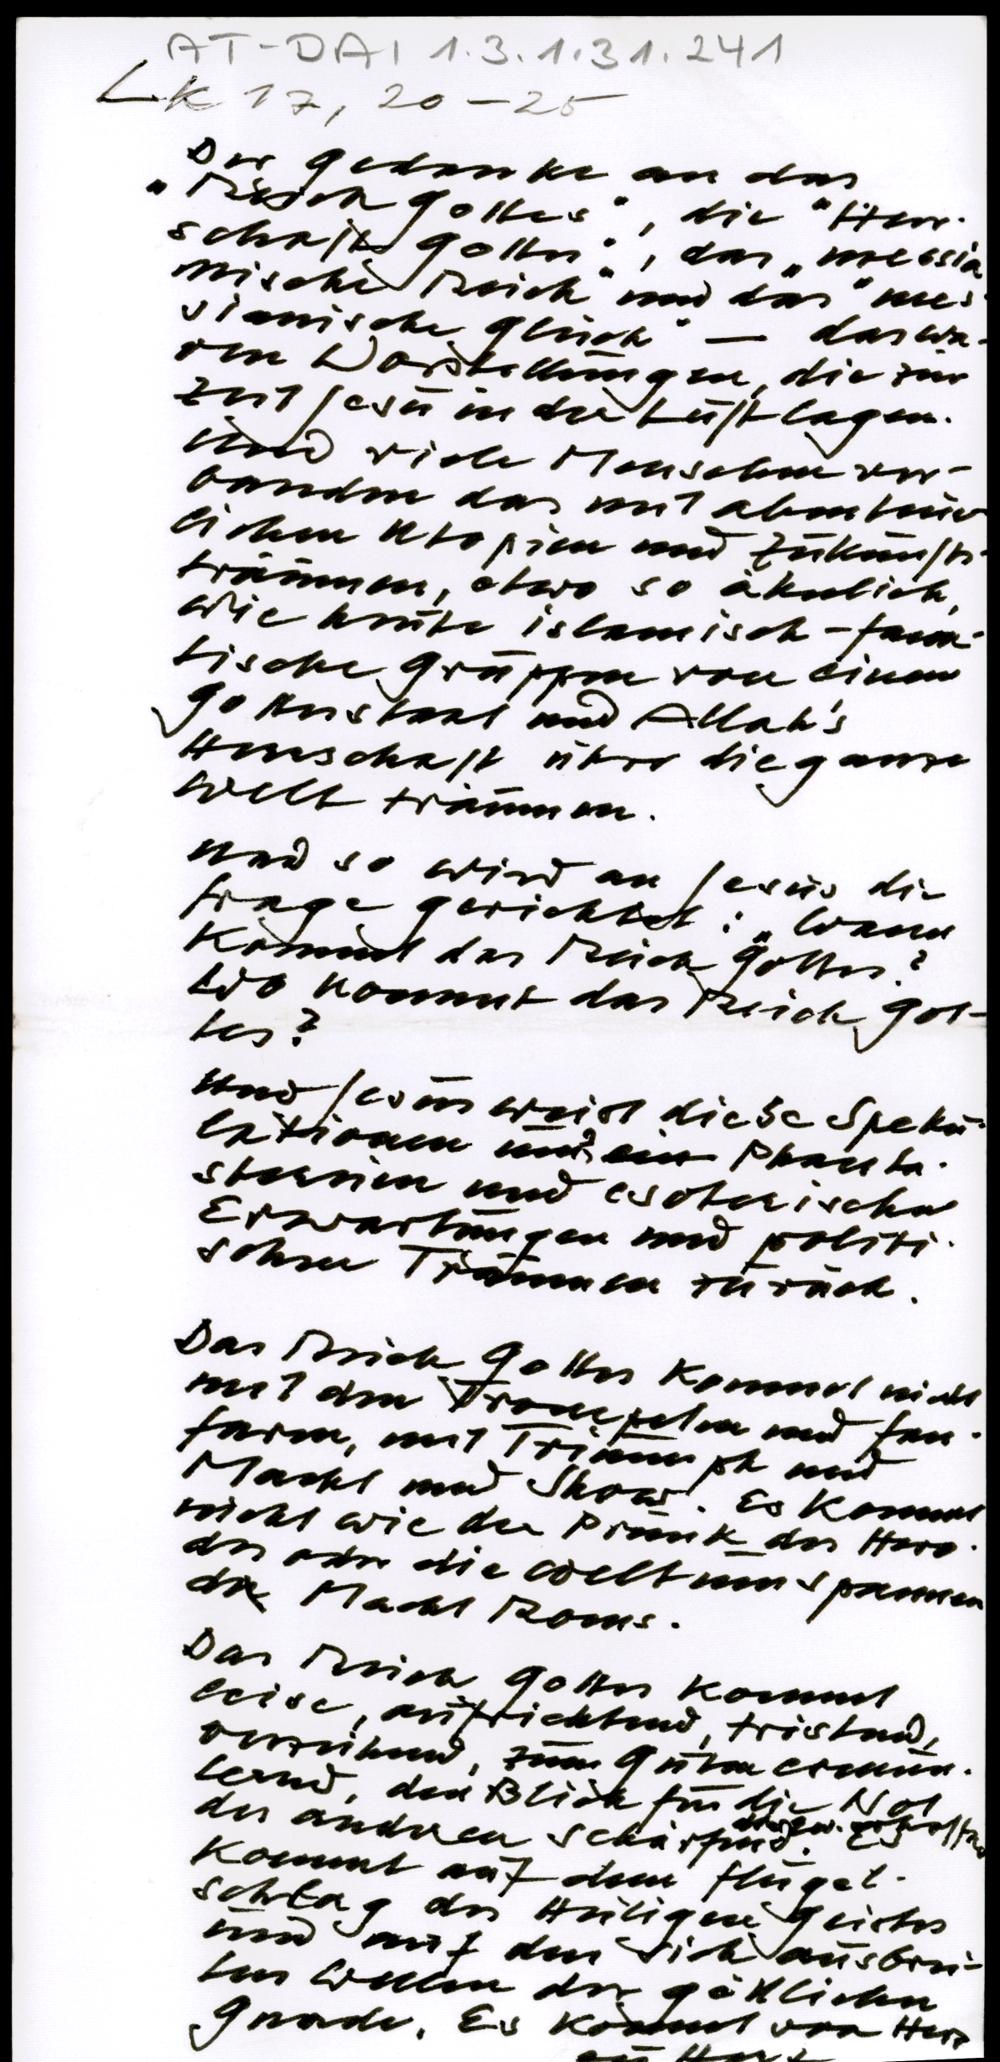 AT-DAI 1.3.1.31.241
Lk 17, 20-25
Der Gedanke an das
"Reich Gottes", die "Herr-
schaft Gottes", das "messia-
nische Reich" und das "mes-
sianische Glück" — das wa-
ren Vorstellungen, die zur
Zeit Jesu in der Luft lagen.
Und viele Menschen ver-
banden das mit abenteuer-
lichen Utopien und Zukunfts-
träumen, etwa so ähnlich,
wie heute islamisch-fana-
tische Gruppen von einem
Gottesstaat und Allah's
Herrschaft über die ganze
Welt träumen.
Und so wird an Jesus die
Frage gerichtet: "Wann
kommt das Reich Gottes?
Wo kommt das Reich Got-
tes?
Und Jesus weist diese Speku-
lationen und Phanta-
stereien und esoterischen
Erwartungen und politi-
schen Träumen zurück.
Das Reich Gottes kommt nicht
mit den Trompeten und Fan-
faren, mit Triumph und
Macht und Show. Es kommt
nicht wie der Prunk des Hero-
des oder die weltumspannen
de Macht Roms.
Das Reich Gottes kommt
leise, aufrichtend, tröstend,
verzeihend, zum Guten ermun-
ternd, den Blick für die Not
des anderen schärfend. Es
kommt auf dem Flügel-
schlag des Heiligen Geistes
und auf den sich ausbrei-
ten Wellen der göttlichen
Gnade. Es kommt von Herz
zu Herz